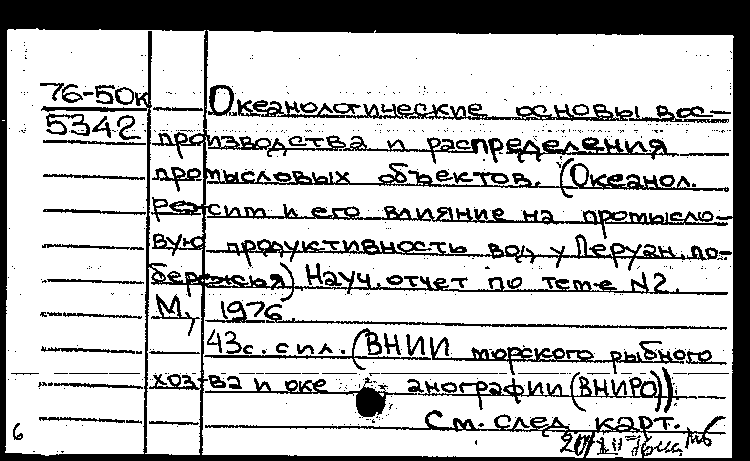 76-50к
5342
Океанологические основы вос-
производства и распределения
промысловых объектов. (Океанол.
режим и его влияние на промысло-
вую продуктивность вод у Перуан. по-
бережья) Науч. отчет по теме №2.
М., 1976.
43с. с ил. (ВНИИ морского рыбного
хоз-ва и оке анографии (ВНИРО))
См. след. карт.
6